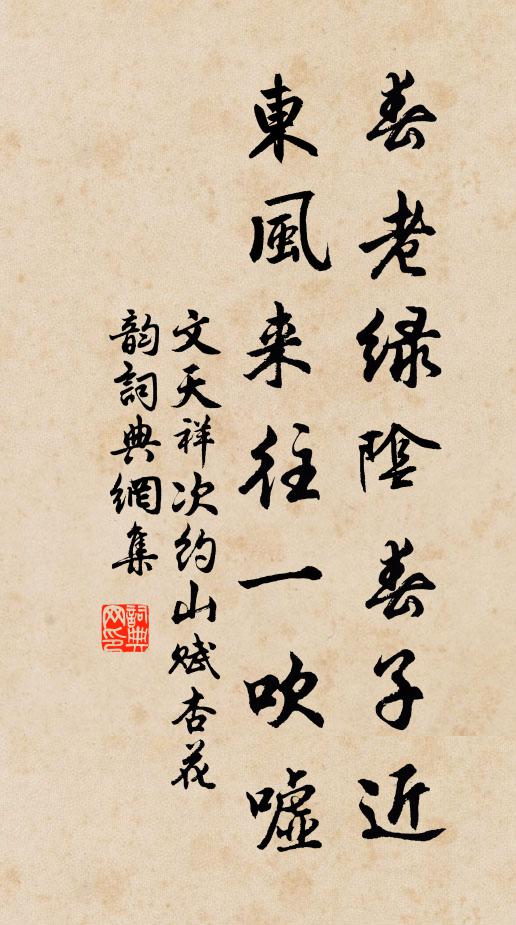 春老绿陰春子近
東風来往一吹嘘
文天祥次約山赋杏花
韵詞典網集
詞典网印